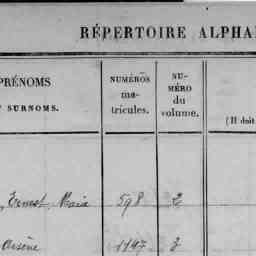 RÉPERTOIRE ALPHA
PRÉNOMS
SURNOMS.
NUMÉROS
ma-
tricules.
NU-
MÉRO
du
volume.
(Il doit
Ernest, Maria 598 2
Arsène 1197 3